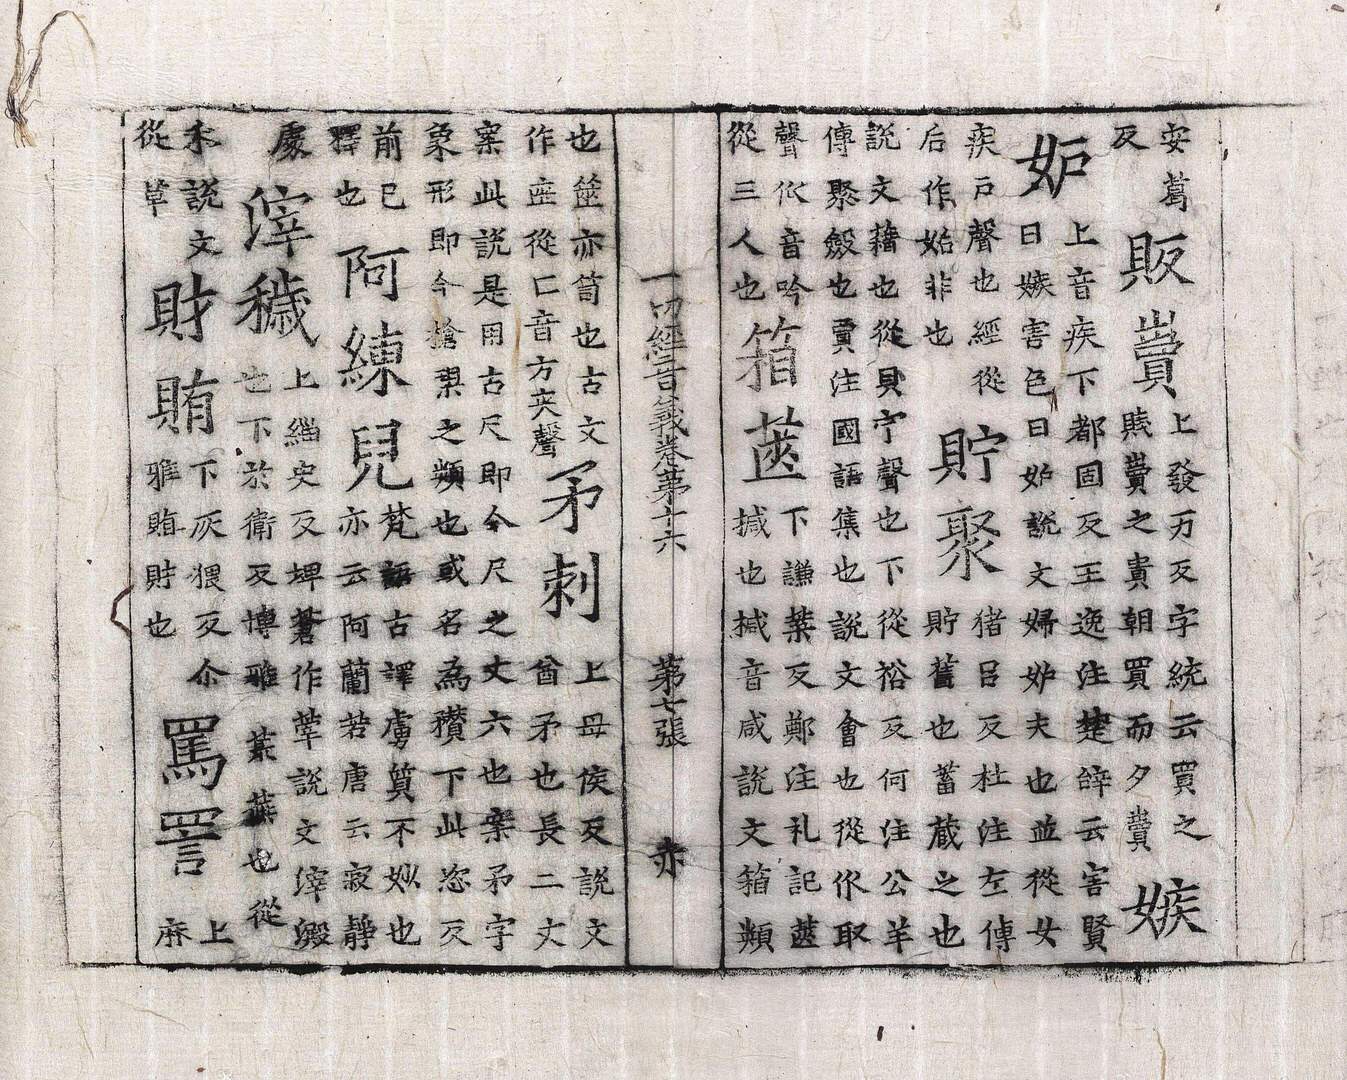 安葛
反
販賣
上發万反字統云買之
賤賣之貴朝買而夕賣
嫉
妒
上音疾下都固反王逸注楚辭云害賢
曰嫉害色曰妒說文婦妒夫也並從女
疾戶聲也經從
后作妬非也
貯聚
猪呂反杜注左傳
貯舊也蓄藏之也
說文藉也從貝宁聲也下從裕反何注公羊
傳聚斂也賈注國語集也說文會也從乑取
聲乑音吟
從三人也
箱篋
下謙葉反鄭注礼記篋
椷也椷音咸說文箱類
一切經音義卷第十六 第七張 赤
也筮亦笥也古文
作座從匚音方夾聲
矛刺
上母侯反說文
酋矛也長二丈
案此說是用古尺即今尺之丈六也案矛字
象形即今槍槊之類也或名為穳下此恣反
前已
釋也
阿練兒
梵語古譯虜質不妙也
亦云阿蘭若唐云寂靜
處
滓穢
上緇史反埤蒼作莘說文滓澱
也下於衛反博雅蕪也從
禾說文
從草
財賄
下灰猥反尒
雅賄財也
罵詈
上
麻